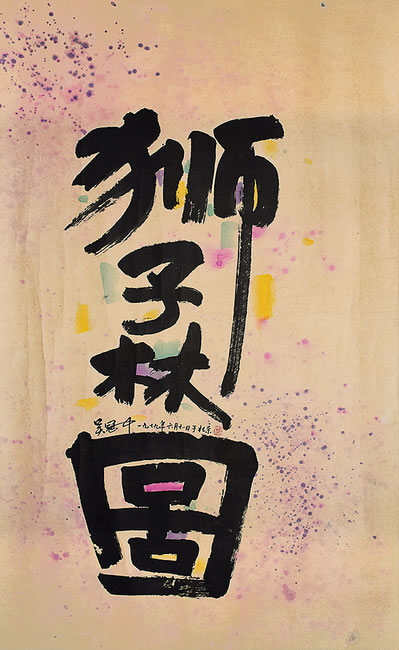 狮
子
林
吴冠中 一九 九年六月 日于北京
圖